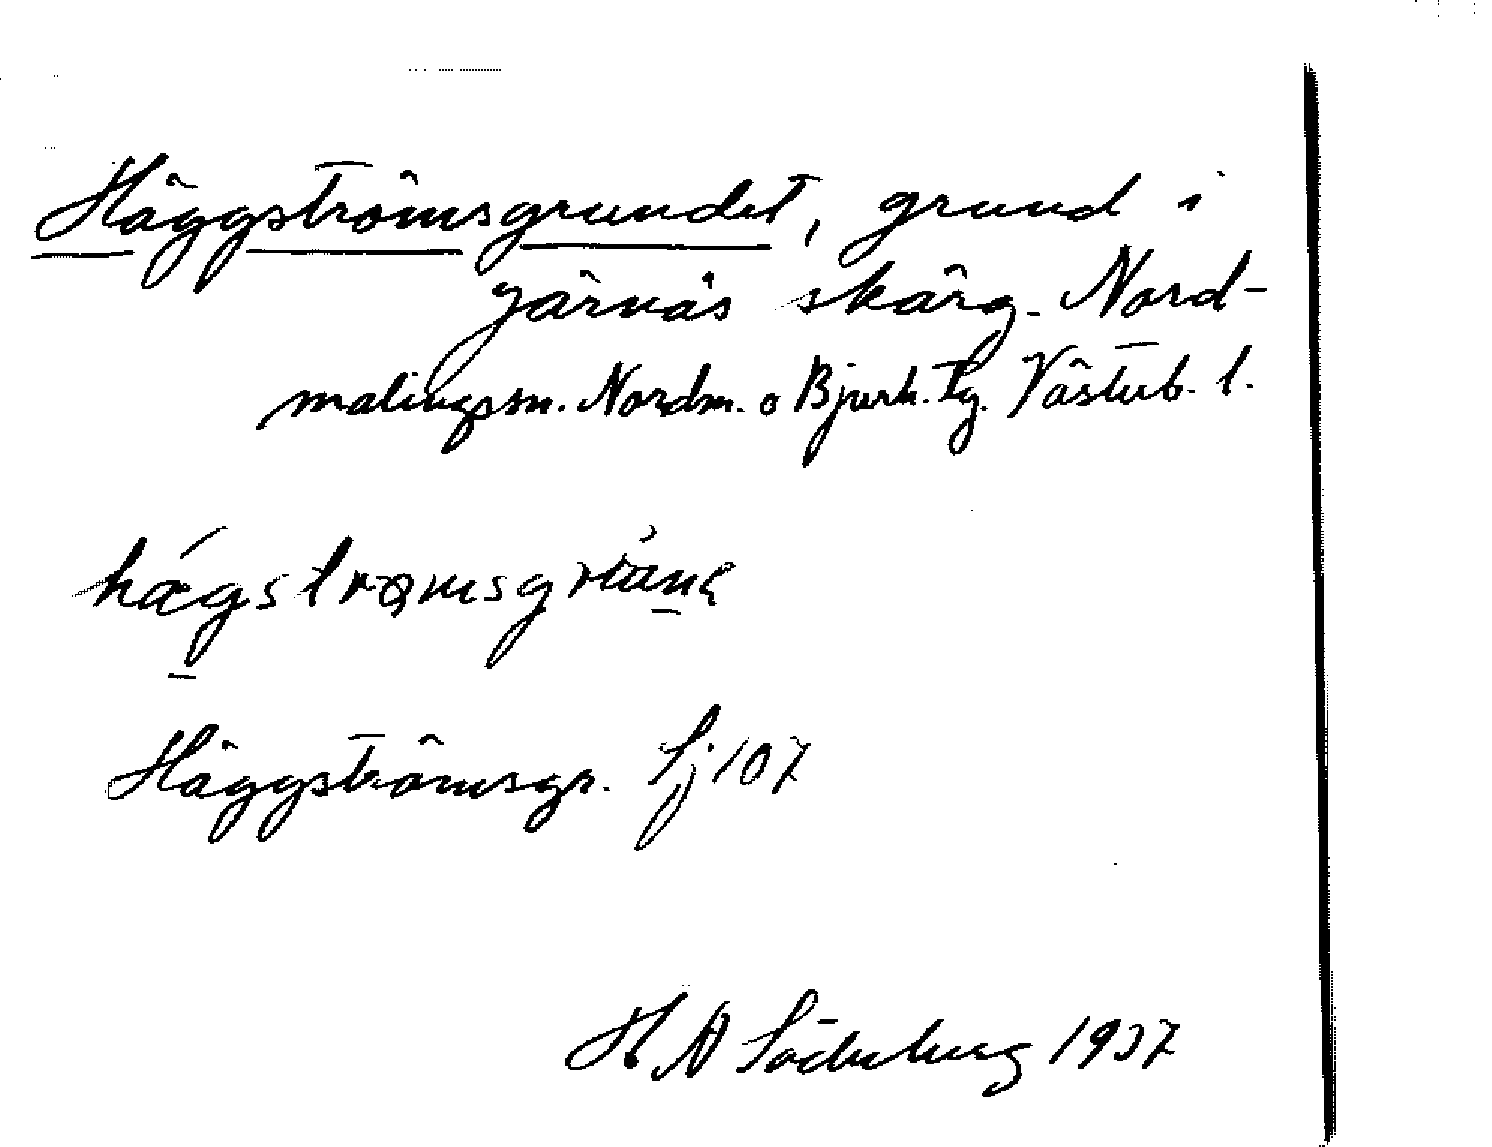 Häggströmsgrundet, grund i
Järnäs skärg. Nord-
malingssn. Nordm. o Bjurh. tg. Västerb. l.
Häggströmsgr. Sj 107
H A Söderberg 1937